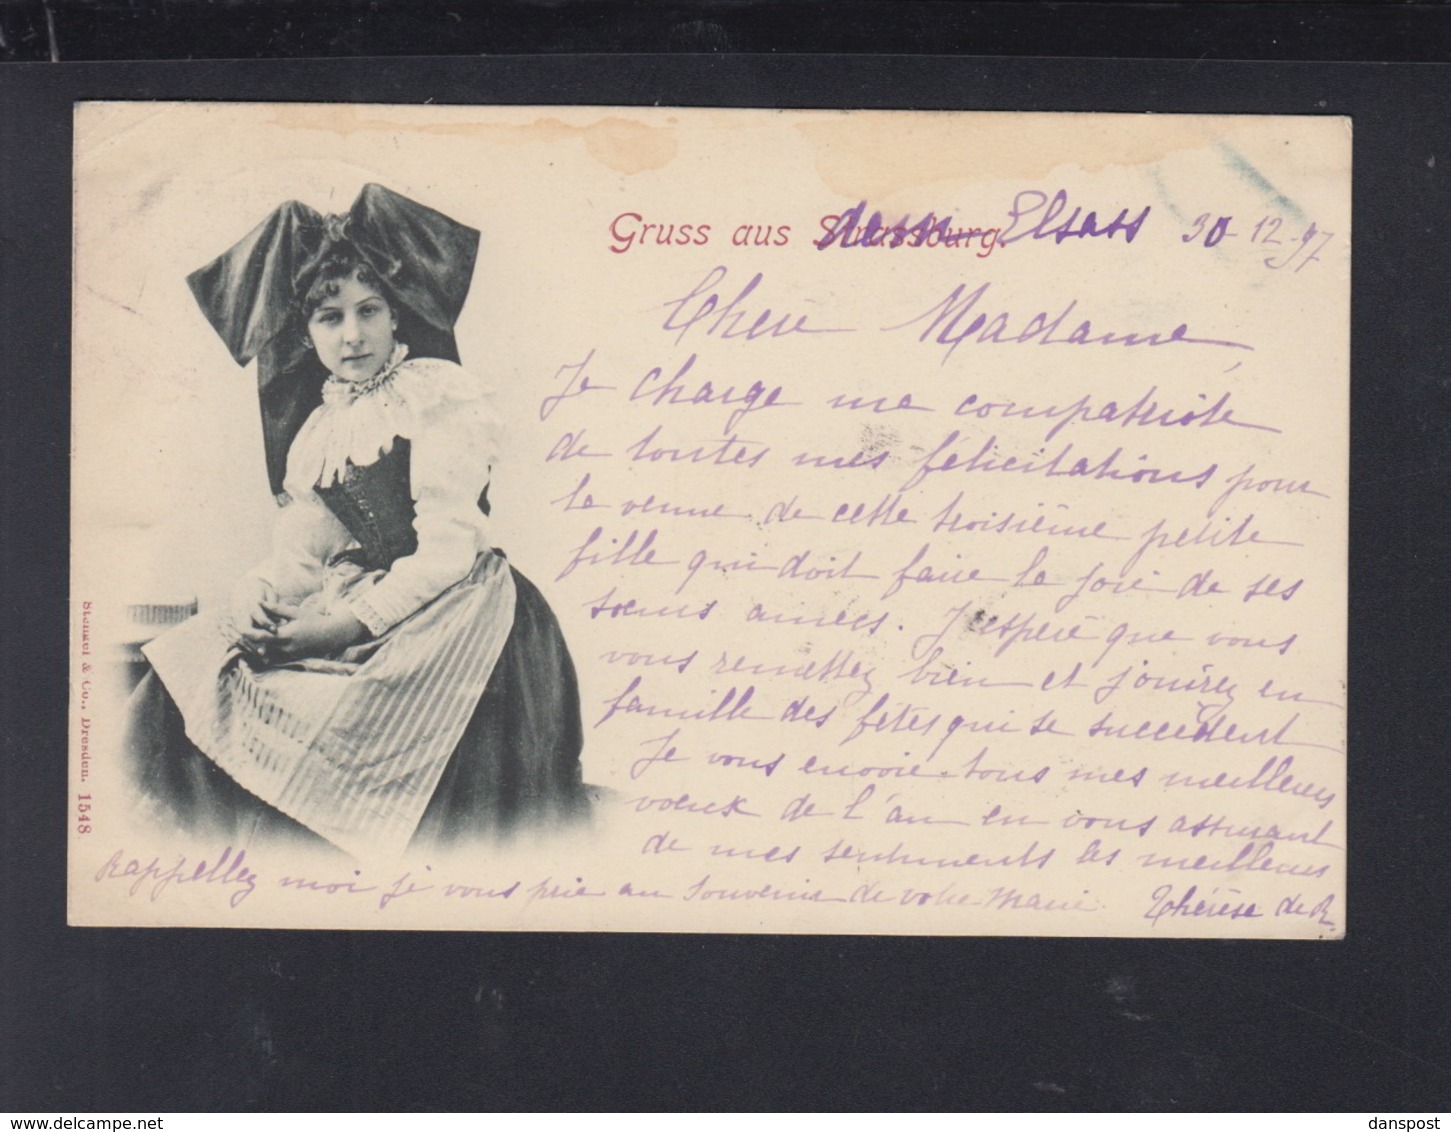 Gruss aus Strassburg. dem Elsass 30-12-97
Chère Madame,
Je charge ma compatriote
de toutes mes félicitations pour
la venue de cette troisième petite
fille qui doit faire la joie de ses
sœurs ainées. J'espère que vous
vous remettez bien et jouirez en
famille des fêtes qui se succèdent
Je vous envoie tous mes meilleurs
vœux de l'an en vous assurant
de mes sentiments les meilleurs
Rappellez moi je vous prie au souvenir de votre mari Thérèse de R.
Stengel & Co., Dresden. 1548
www.delcampe.net
danspost